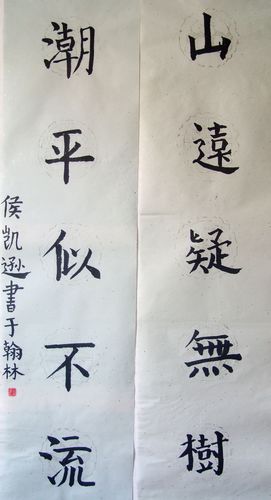 山遠疑無樹
潮平似不流
侯凯逊書于翰林